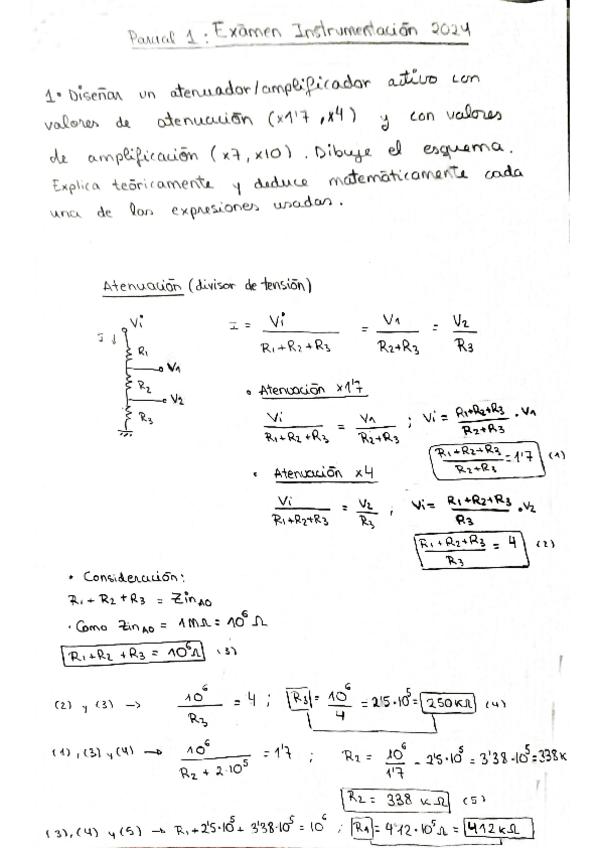 Parcial 1: Exámen Instrumentación 2024
1. Diseñar un atenuador/amplificador activo con
valores de atenuación (x1'7, x4) y con valores
de amplificación (x7, x10). Dibuje el esquema.
Explica teóricamente y deduce matemáticamente cada
una de las expresiones usadas.
Atenuación (divisor de tensión)
Vi
I ↓
R1
V1
R2
V2
R3
I = Vi / (R1+R2+R3) = V1 / (R2+R3) = V2 / R3
• Atenuación x1'7
Vi / (R1+R2+R3) = V1 / (R2+R3) ; Vi = (R1+R2+R3) / (R2+R3) · V1
(R1+R2+R3) / (R2+R3) = 1'7 (1)
• Atenuación x4
Vi / (R1+R2+R3) = V2 / R3 ; Vi = (R1+R2+R3) / R3 · V2
(R1+R2+R3) / R3 = 4 (2)
• Consideración:
R1 + R2 + R3 = Zin AO
· Como Zin AO = 1MΩ = 10^6 Ω
R1+R2+R3 = 10^6 Ω (3)
(2) y (3) → 10^6 / R3 = 4 ; R3 = 10^6 / 4 = 2'5·10^5 = 250KΩ (4)
(1), (3) y (4) → 10^6 / (R2 + 2·10^5) = 1'7 ; R2 = 10^6 / 1'7 - 2'5·10^5 = 3'38·10^5 = 338K
R2 = 338 KΩ (5)
(3), (4) y (5) → R1 + 2'5·10^5 + 3'38·10^5 = 10^6 ; R1 = 4'12·10^5 Ω = 412KΩ